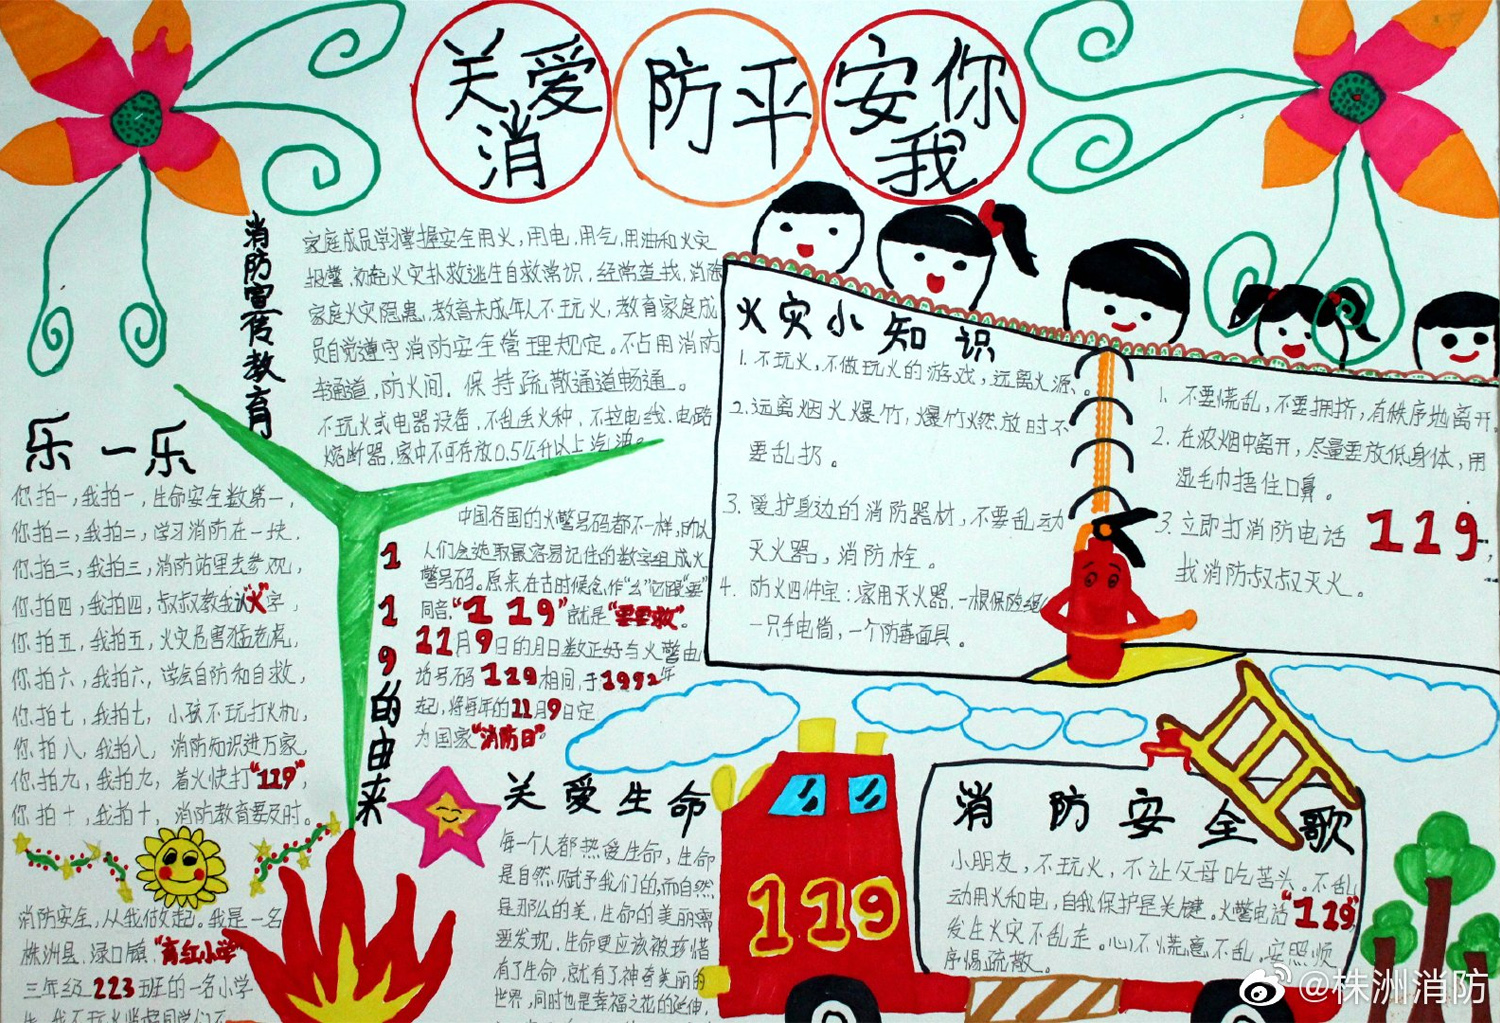 关爱
消
防平
安你
我
消防宣传教育
家庭成员学习掌握安全用火,用电,用气,用油和火灾
报警,初起火灾扑救逃生自救常识,经常查找,消除
家庭火灾隐患,教育未成年人不玩火,教育家庭成
员自觉遵守消防安全管理规定。不占用消防
车通道,防火间.保持疏散通道畅通。
不玩火或电器设备,不乱丢火种,不拉电线.电路
熔断器.家中不可存放0.5公升以上汽油。
乐一乐
你拍一,我拍一,生命安全数第一,
你拍二,我拍二,学习消防在一块,
你拍三,我拍三,消防站里去参观,
你拍四,我拍四,叔叔教我认“火”字,
你拍五,我拍五,火灾危害猛老虎,
你拍六,我拍六,学会自防和自救,
你拍七,我拍七,小孩不玩打火机,
你拍八,我拍八,消防知识进万家,
你拍九,我拍九,着火快打“119”,
你拍十,我拍十,消防教育要及时。
消防安全,从我做起。我是一名
株洲县.渌口镇.“育红小学”
三年级223班的一名小学
119的由来
中国各国的火警号码都不一样,的以
人们会选取最容易记住的数字组成火
警号码。原来在古时候念作“幺”它跟“要”
同音.“119”就是“要要救”。
11月9日的月日数正好与火警电
话号码119相同,于1992年
起,将每年的11月9日定
为国家“消防日”
关爱生命
每一个人都热爱生命,生命
是自然.赋予我们的,而自然
是那么的美,生命的美丽需
要发现,生命更应该被珍惜
有了生命,就有了神奇美丽的
世界,同时也是幸福之花的延伸,
火灾小知识
1.不玩火,不做玩火的游戏,远离火源。
2.远离烟火爆竹,爆竹燃放时不
要乱扔。
3.爱护身边的消防器材,不要乱动
灭火器,消防栓。
4.防火四件宝:家用灭火器.一根保险绳
一只手电筒,一个防毒面具。
1.不要慌乱,不要拥挤,有秩序地离开.
2.在浓烟中离开,尽量要放低身体,用
湿毛巾捂住口鼻。
3.立即打消防电话119,
找消防叔叔灭火。
消防安全歌
小朋友,不玩火,不让父母吃苦头。不乱
动用火和电,自我保护是关键。火警电话“119”
发生火灾不乱走。心不慌意不乱,安照顺
序惕疏散。
119
@株洲消防